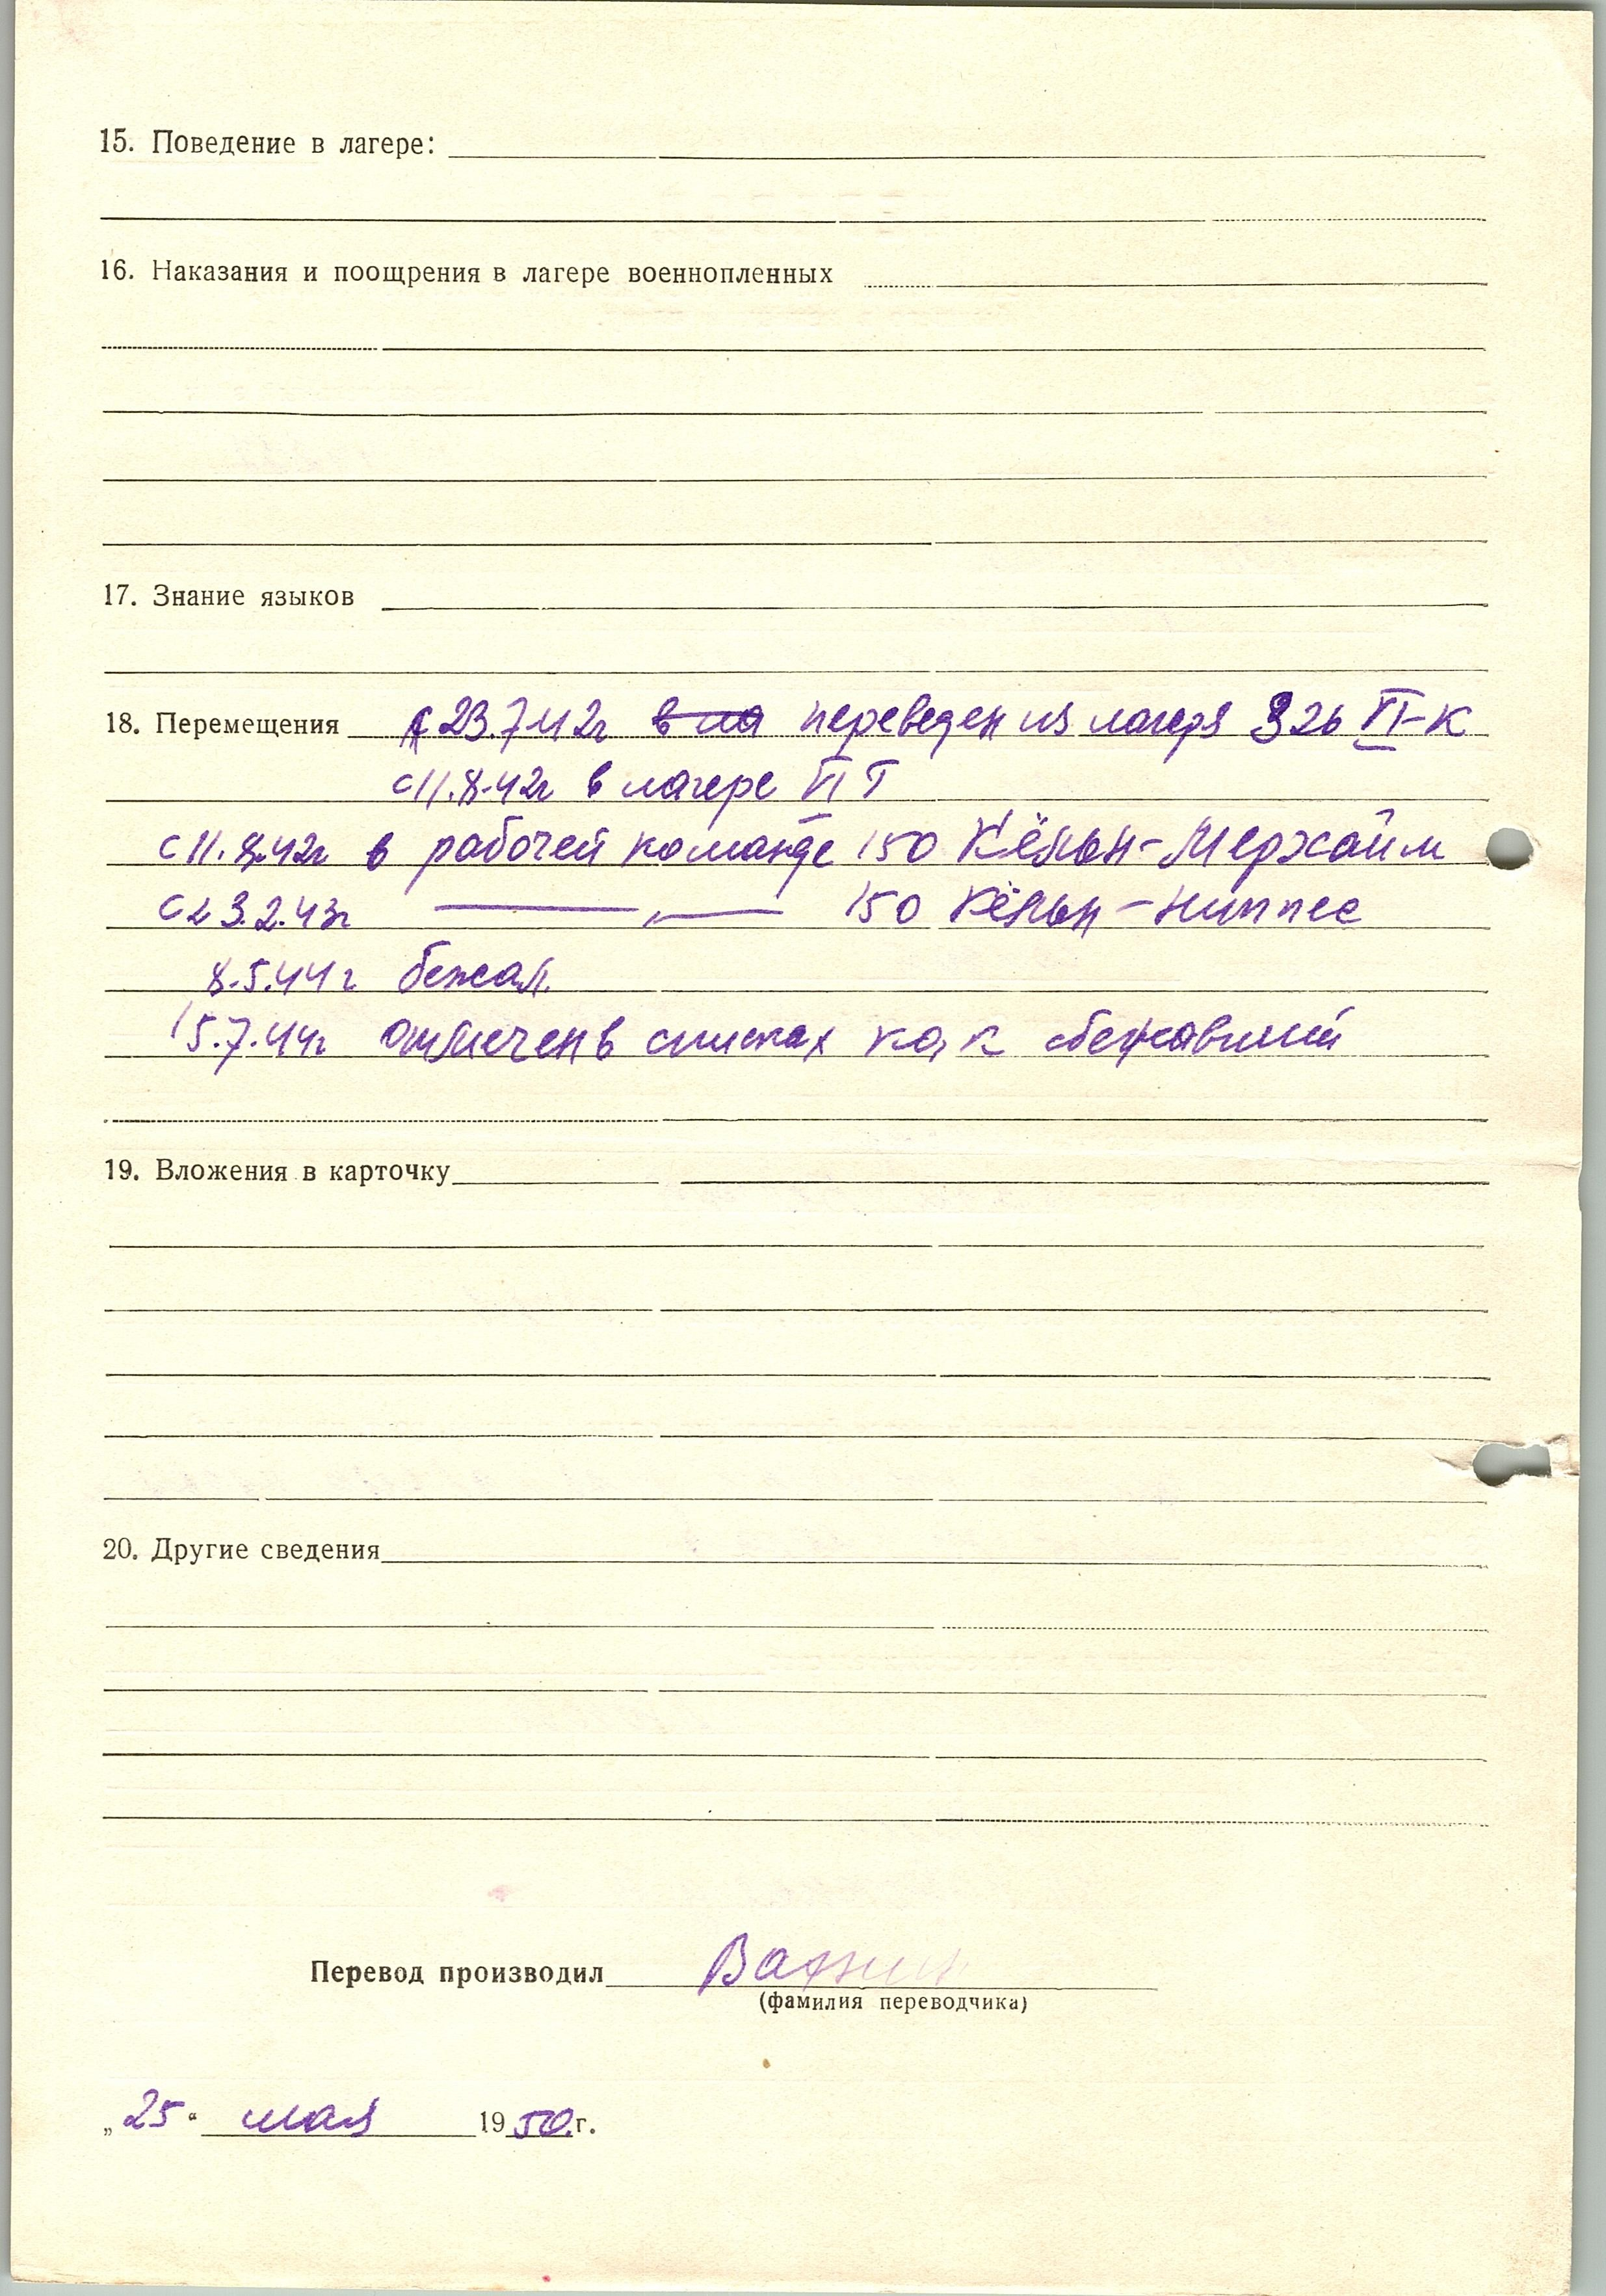 15. Поведение в лагере:
16. Наказания и поощрения в лагере военнопленных
17. Знание языков
18. Перемещения с 23.7.42г в ла переведен из лагеря 326 VI-К
с 11.8.42г в лагере VI Г
с 11.8.42г в рабочей команде 150 Кёльн-Мерхайм
с 23.2.43г —„— 150 Кёльн-Ниппес
8.5.44г бежал.
15.7.44г отмечен в списках как сбежавший
19. Вложения в карточку
20. Другие сведения
Перевод производил
(фамилия переводчика)
„25“ мая 1950 г.